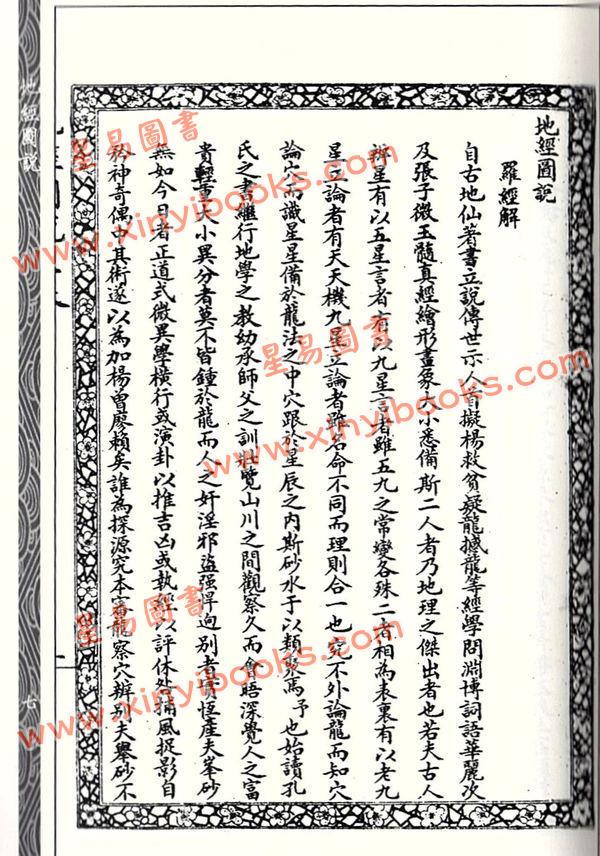 地經圖説
羅經解
自古地仙著書立說傳世示人者擬楊救貧疑龍撼龍等經學問淵博詞語華麗次
及張子微玉髓真經繪形畫象大小悉備斯二人者乃地理之傑出者也若夫古人
辨星有以五星言者有以九星言者雖五九之常變各殊二者相為表裏有以老九
星立論者有天機九星立論者雖名命不同而理則合一也究不外論龍而知穴
論穴而識星星備於龍法之中穴跟於星辰之内斯砂水于以類聚焉予也始讀孔
氏之書繼行地學之教幼承師父之訓壯覽山川之間觀察久而會晤深覺人之富
貴輕重大小異分者莫不皆鍾於龍而人之奸淫邪盜强悍迥別者實怪產夫峯砂
無如今日者正道式微異學橫行或演卦以推吉凶或執經以評休咎捕風捉影自
矜神奇偶中其術遂以為加楊曾廖賴矣誰為探源究本審龍察穴辨別夫舉砂不
地經圖説
七
星易圖書
www.xinyibooks.com
星易圖書
www.xinyibooks.com
星易圖書
www.xinyibooks.com